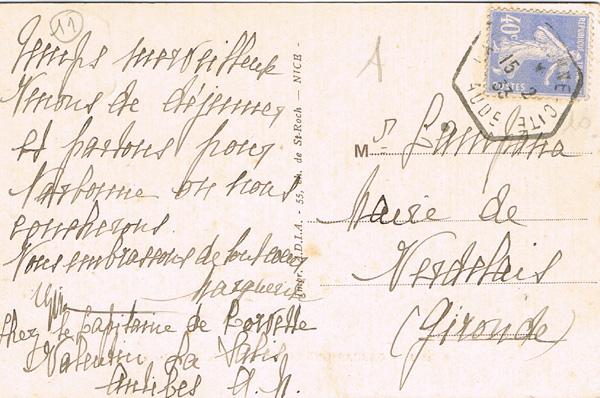 11
Temps merveilleux
Venons de déjeuner
et partons pour
Narbonne où nous
coucherons.
Vous embrassons de tout coeur
Marguerite
chez le Capitaine de Corvette
Valentin La
Antibes A.M.
A
55, de St-Roch — NICE -
40c
POSTES
CITÉ
AUDE
15
M
Mairie de
Verdelais
(Gironde)